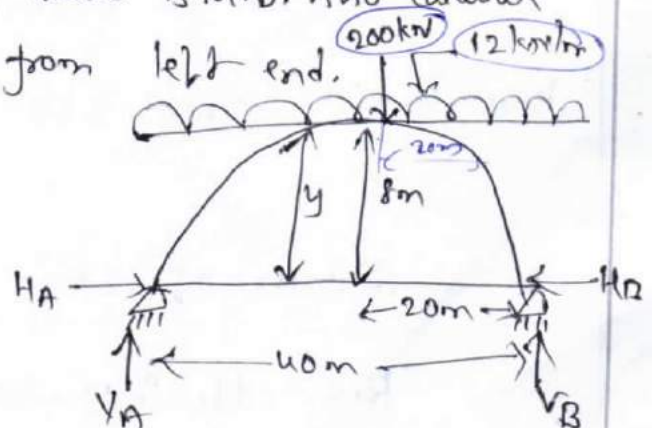 from left end.
200kN 12kN/m
20m
y 8m
HA HB
20m
40m
VA VB